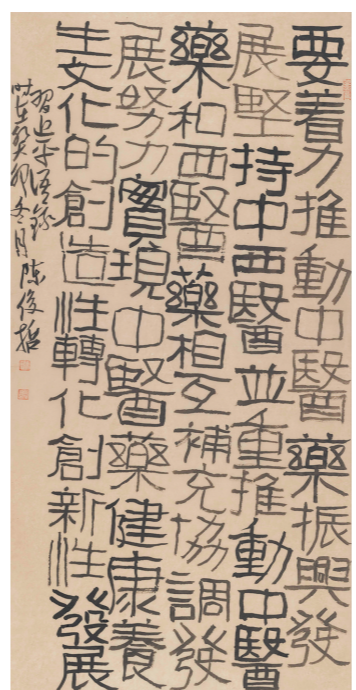 要着力推動中醫藥振興發
展堅持中西醫並重推動中醫
藥和西醫藥相互補充協調發
展努力實現中醫藥健康養
生文化的創造性轉化創新性發展
習近平語錄
時在癸卯冬月陳俊哲